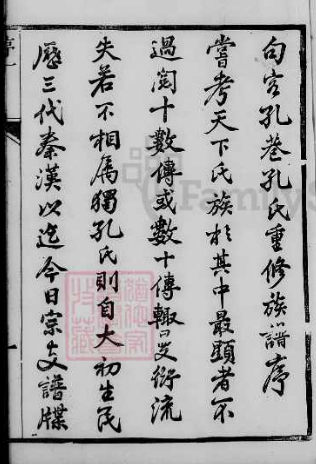 句容孔巷孔氏重修族譜序
嘗考天下氏族於其中最顯者不
過閱十數傳或數十傳輒旻衍流
失若不相属獨孔氏則自大初生民
歷三代秦漢以迄今日宗支譜牒
序一
FamilyS